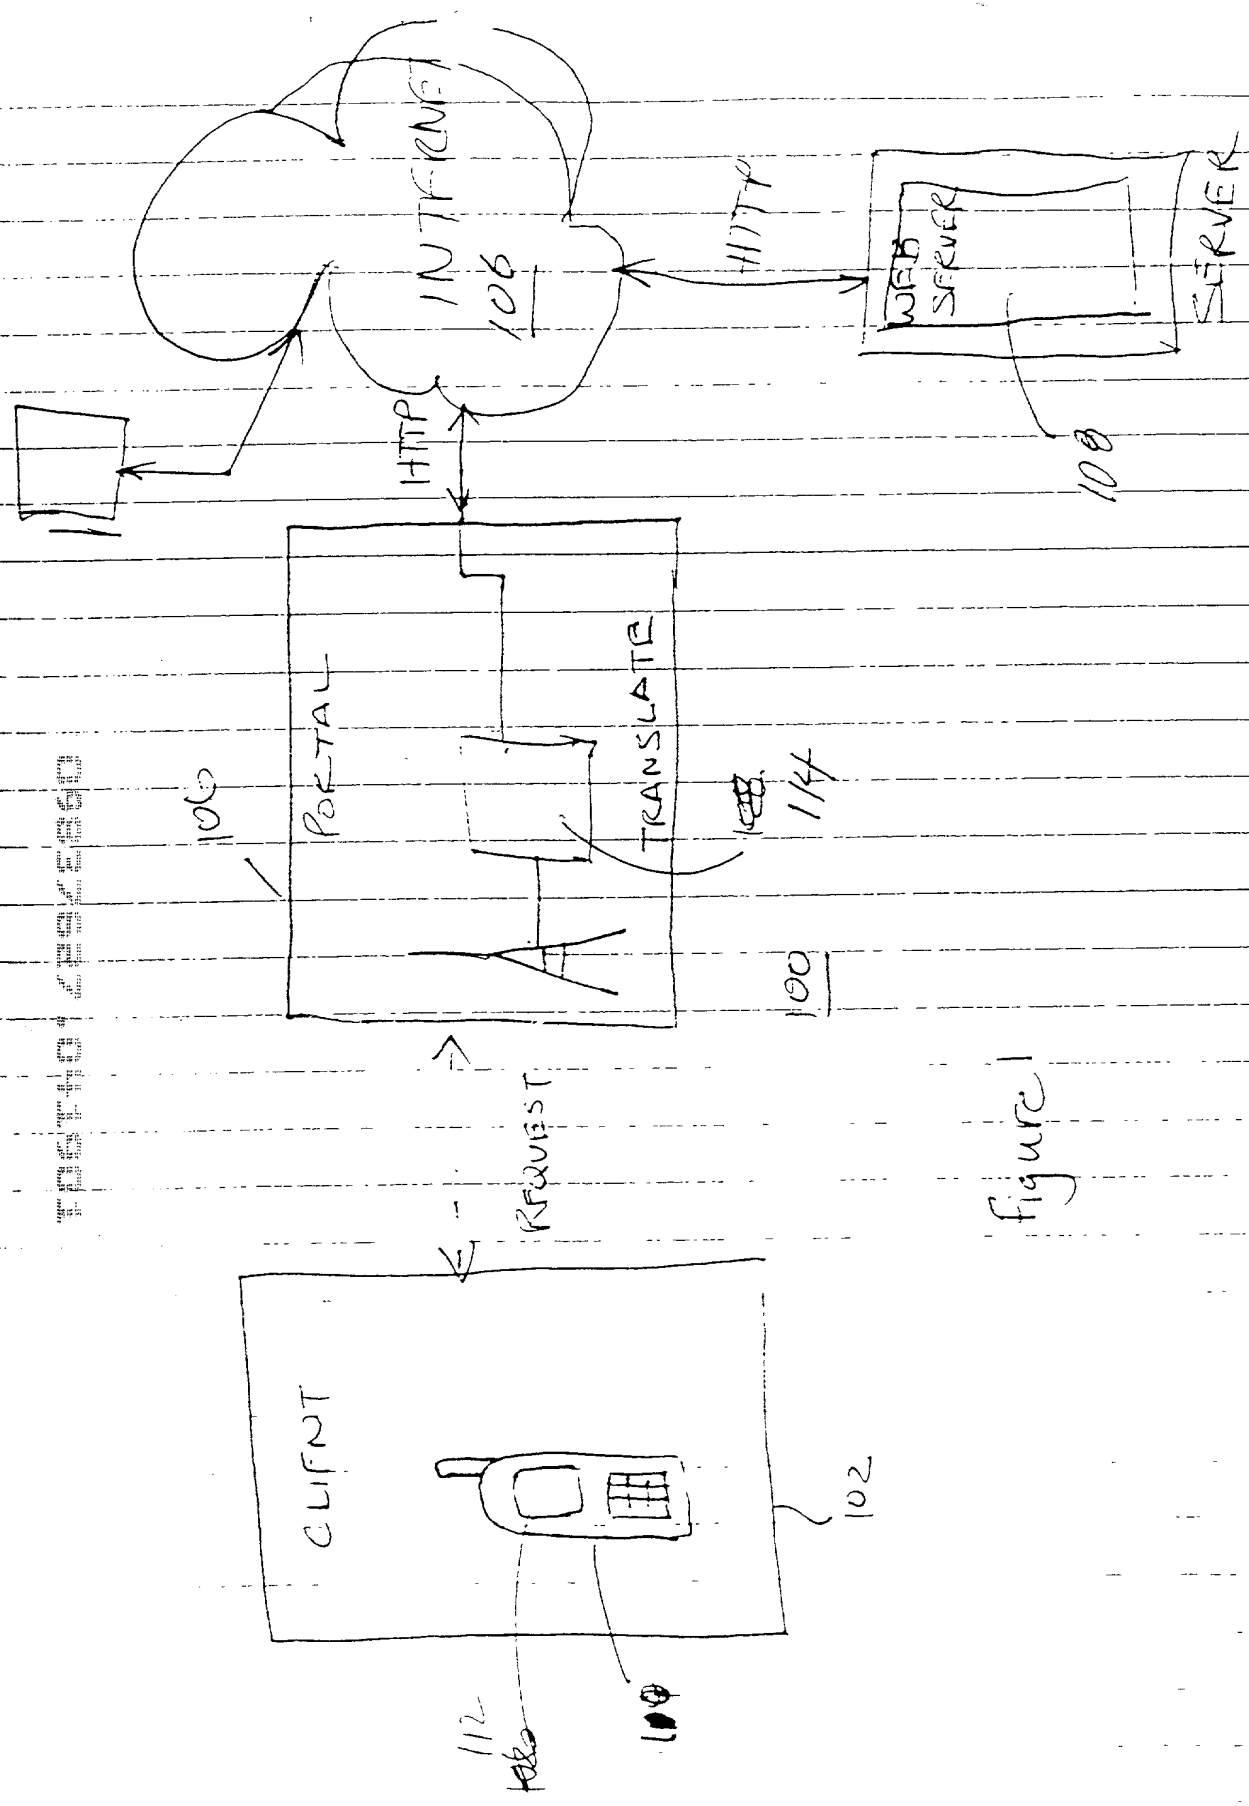 CLIENT
112
110
102
REQUEST
106
PORTAL
TRANSLATE
114
100
HTTP
INTERNET
106
HTTP
WEB
SERVER
SERVER
108
Figure 1